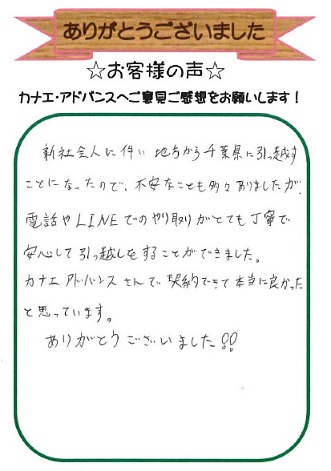 ありがとうございました
☆お客様の声☆
カナエ・アドバンスへご意見ご感想をお願いします!
新社会人に伴い地方から千葉県に引っ越す
ことになったので、不安なことも多々ありましたが、
電話やLINEでのやり取りがとても丁寧で
安心して引っ越しをすることができました。
カナエアドバンスさんで契約できて本当に良かった
と思っています。
ありがとうございました!!